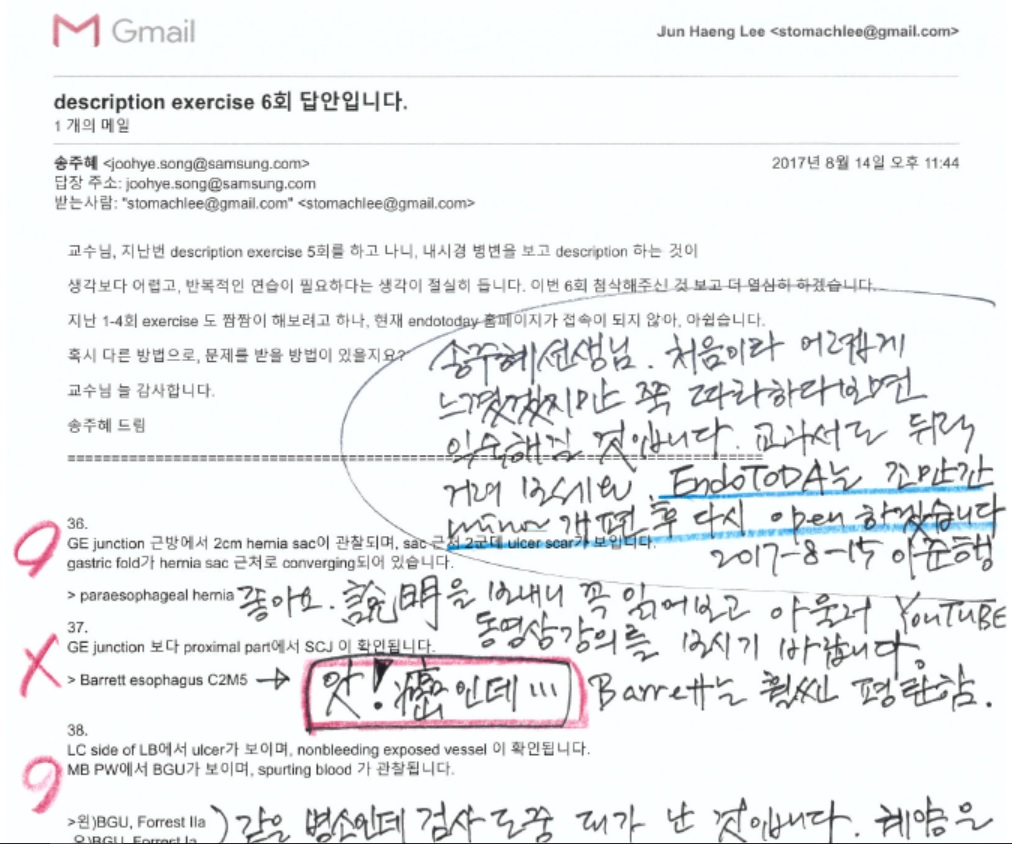 Gmail
Jun Haeng Lee <stomachlee@gmail.com>
description exercise 6회 답안입니다.
1 개의 메일
송주혜 <joohye.song@samsung.com>
2017년 8월 14일 오후 11:44
답장 주소: joohye.song@samsung.com
받는사람: "stomachlee@gmail.com" <stomachlee@gmail.com>
교수님, 지난번 description exercise 5회를 하고 나니, 내시경 병변을 보고 description 하는 것이
생각보다 어렵고, 반복적인 연습이 필요하다는 생각이 절실히 듭니다. 이번 6회 첨삭해주신 것 보고 더 열심히 하겠습니다.
지난 1-4회 exercise 도 짬짬이 해보려고 하나, 현재 endotoday 홈페이지가 접속이 되지 않아, 아쉽습니다.
혹시 다른 방법으로, 문제를 받을 방법이 있을지요?
교수님 늘 감사합니다.
송주혜 드림
송주혜선생님. 처음이라 어렵게
느꼈겠지만 쭉 따라하다보면
익숙해질 것입니다. 교과서도 뒤적
거려 보세요. EndoTODAY는 조만간
minor 개편 후 다시 open 하겠습니다
2017-8-15 이준행
36.
GE junction 근방에서 2cm hernia sac이 관찰되며, sac 근처 2군데 ulcer scar가 보입니다.
gastric fold가 hernia sac 근처로 converging되어 있습니다.
> paraesophageal hernia
좋아요. 說明을 보내니 꼭 읽어보고 아울러 YouTUBE
동영상강의를 보시기 바랍니다.
37.
GE junction 보다 proximal part에서 SCJ 이 확인됩니다.
> Barrett esophagus C2M5
앗! 癌인데... Barrett는 훨씬 평탄함.
38.
LC side of LB에서 ulcer가 보이며, nonbleeding exposed vessel 이 확인됩니다.
MB PW에서 BGU가 보이며, spurting blood 가 관찰됩니다.
>왼)BGU, Forrest IIa
오)BGU, Forrest Ia
같은 병소인데 검사 도중 피가 난 것입니다. 혈압을